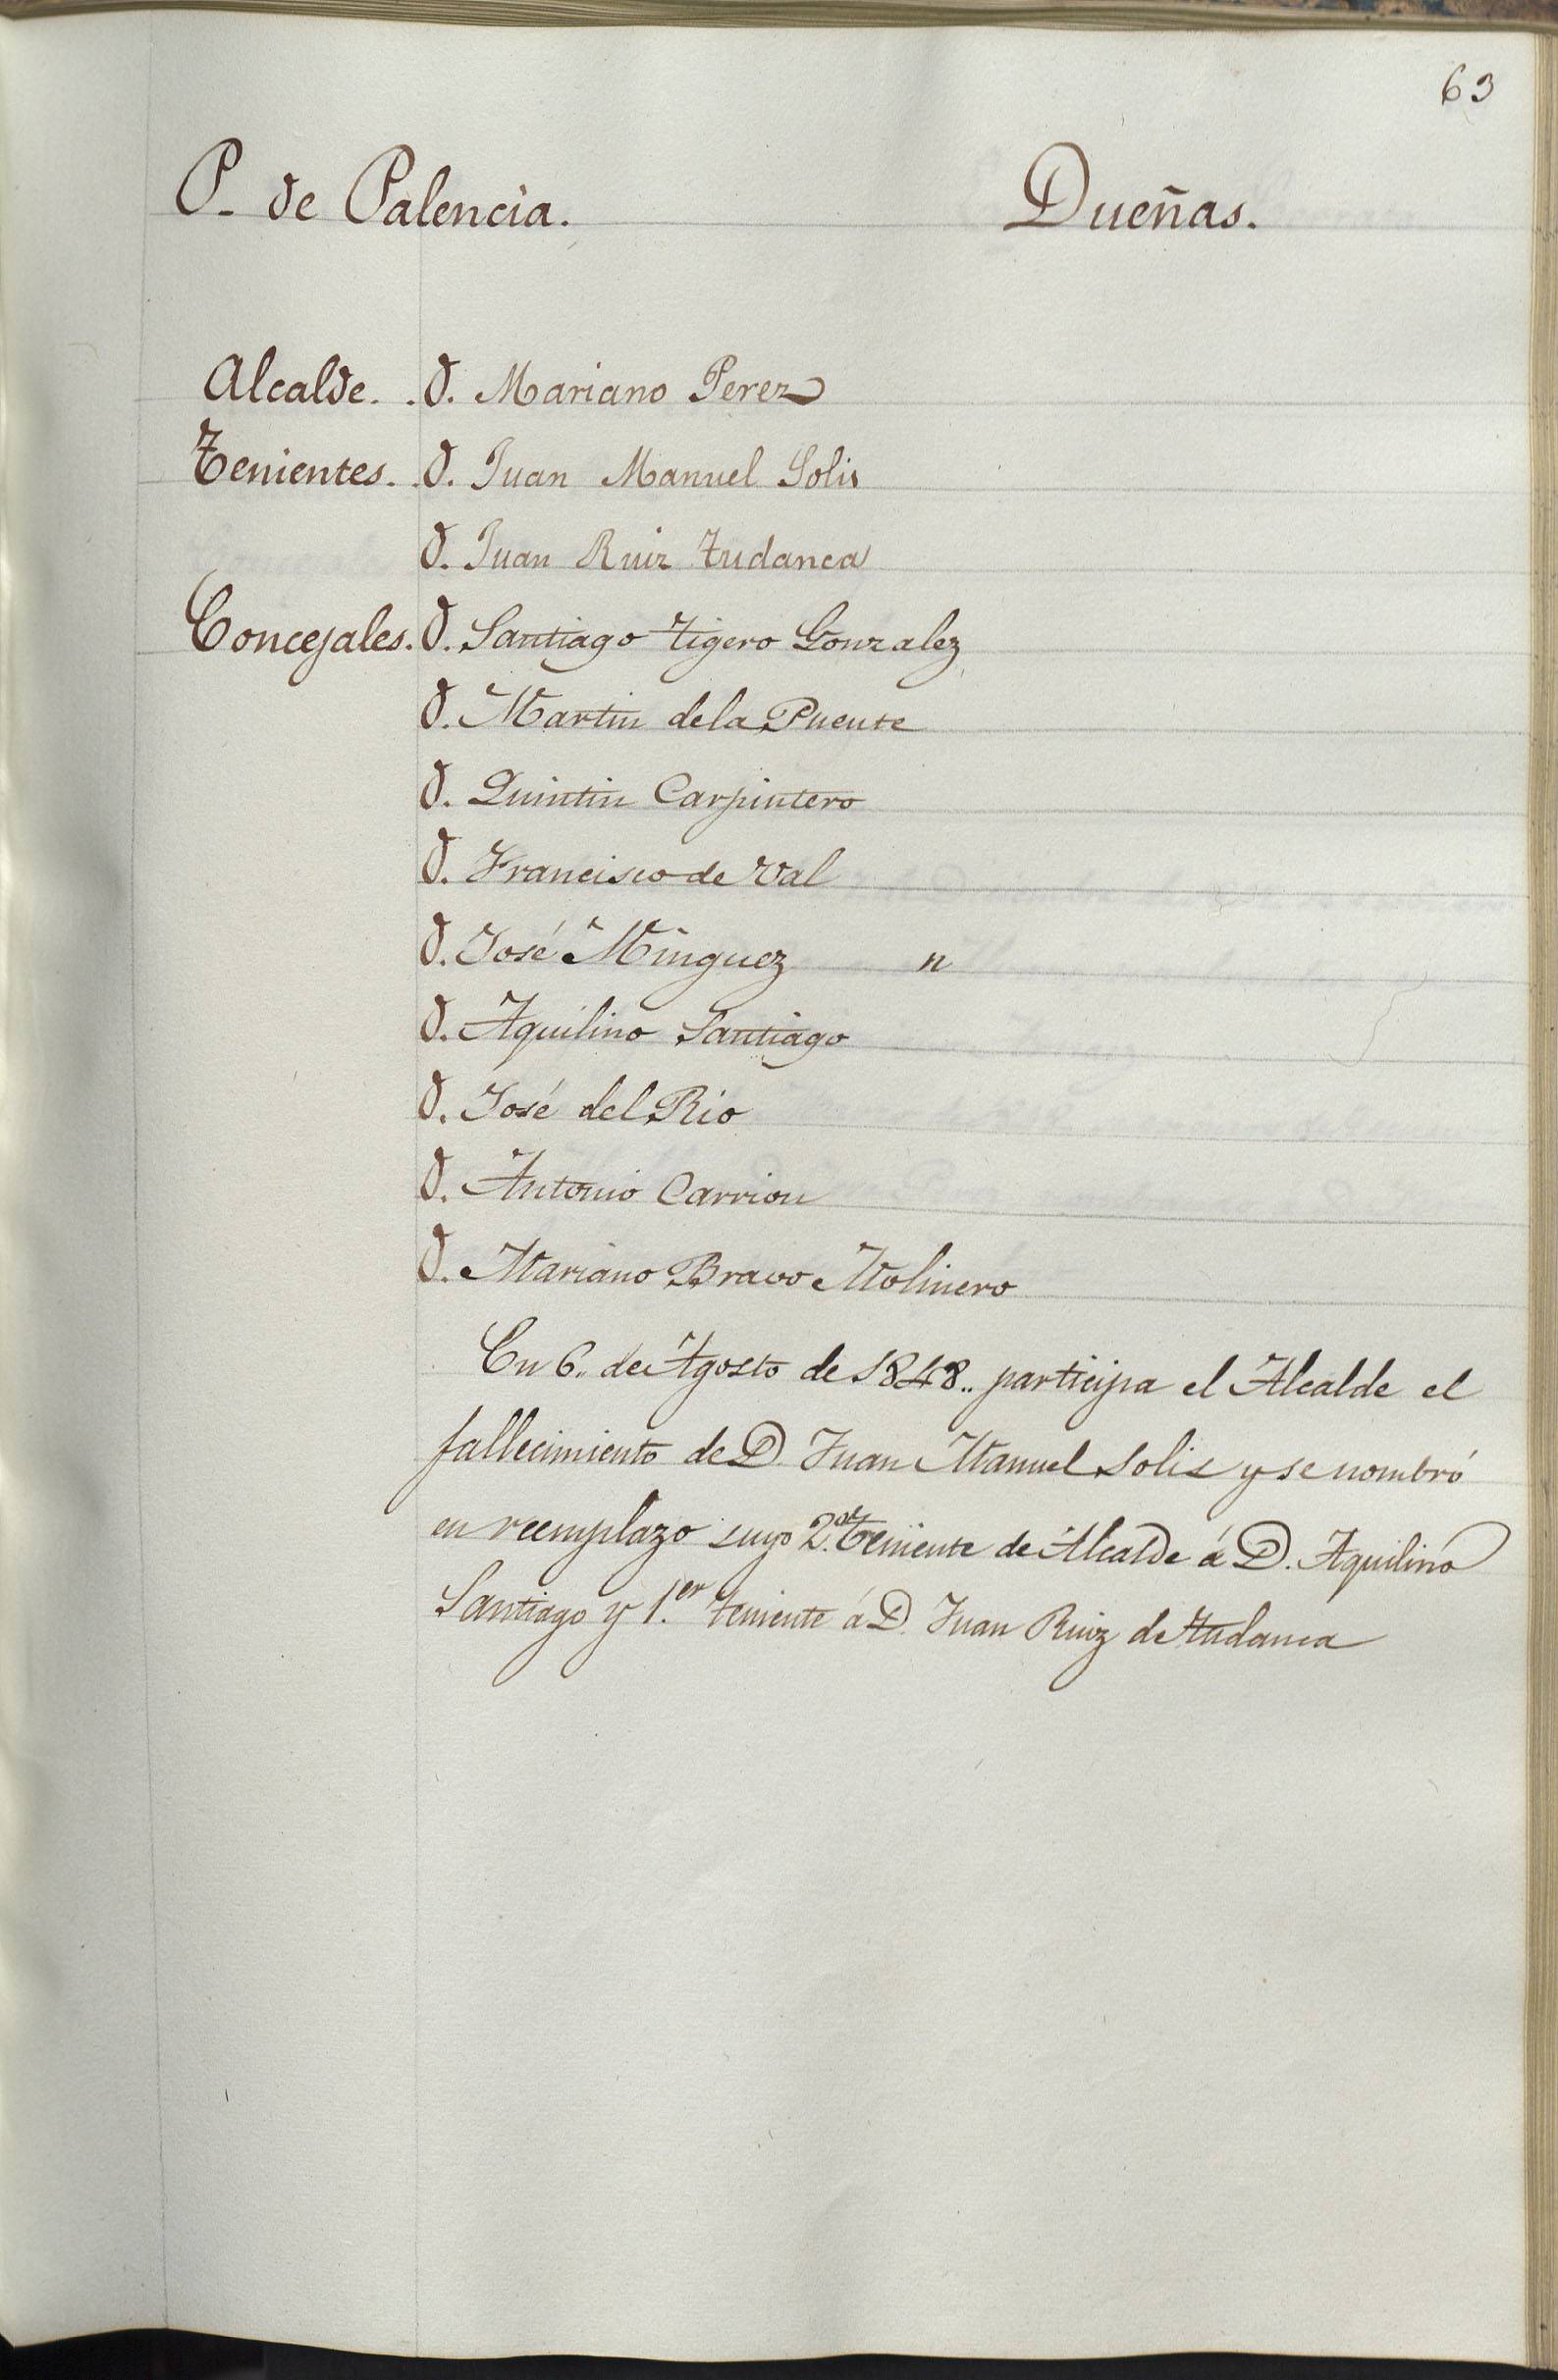 63
P. de Palencia. Dueñas.
Alcalde. . D. Mariano Perez
Tenientes. . D. Juan Manuel Solis
D. Juan Ruiz Tudanca
Concejales. D. Santiago Tigero Gonzalez
D. Martin de la Puente
D. Quintin Carpintero
D. Francisco de Val
D. José Minguez n
D. Aquilino Santiago
D. José del Rio
D. Antonio Carrion
D. Mariano Bravo Molinero
En 6.. de Agosto de 1848.. participa el Alcalde el
fallecimiento de D. Juan Manuel Solis y se nombró
en reemplazo suyo 2.º teniente de Alcalde á D. Aquilino
Santiago y 1.er teniente á D. Juan Ruiz de Tudanca